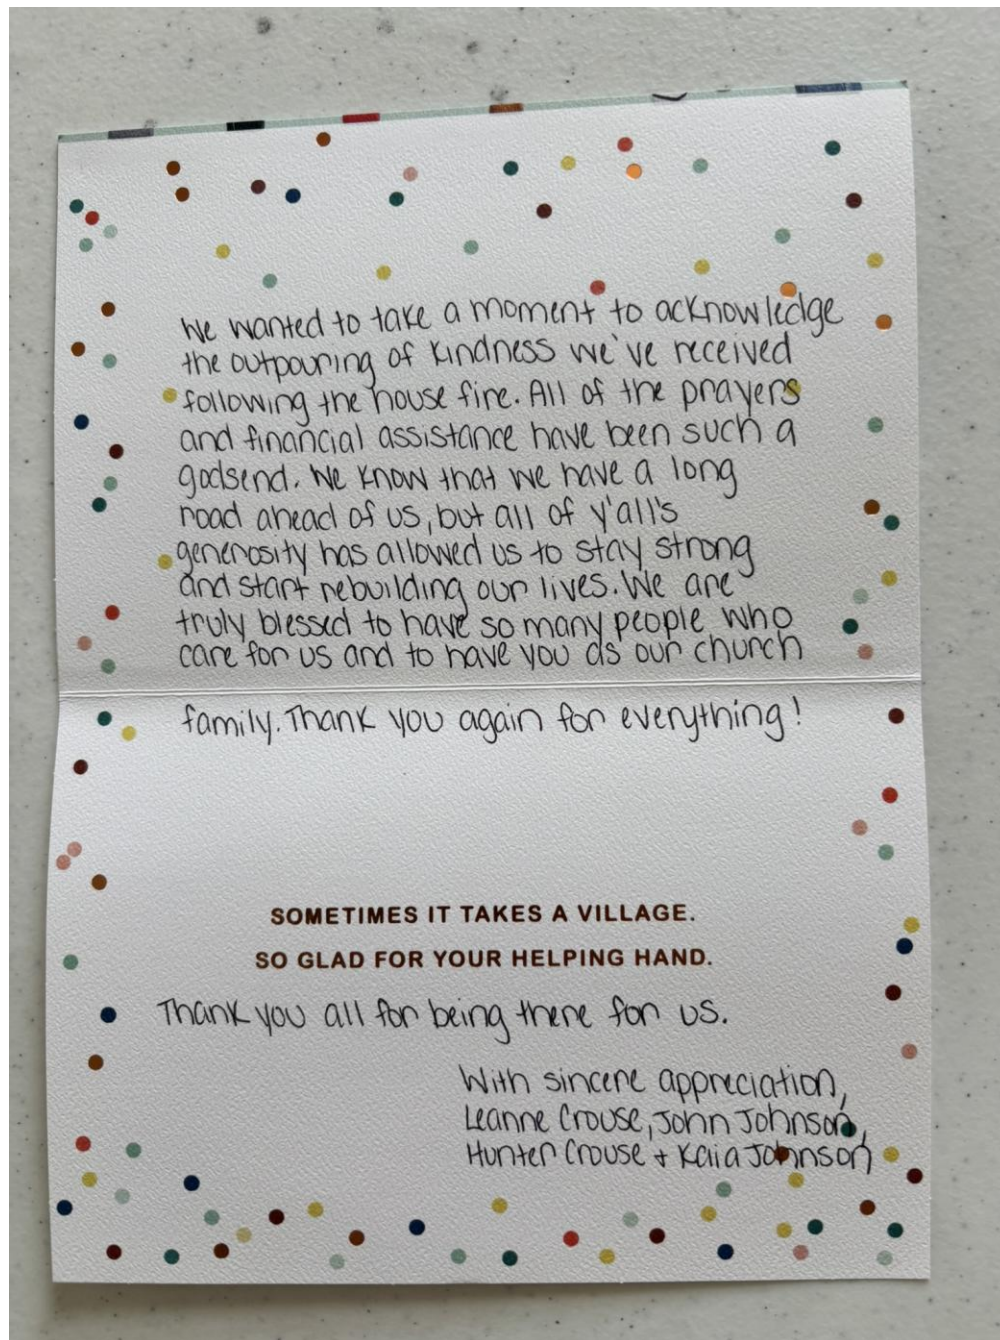 We wanted to take a moment to acknowledge
the outpouring of kindness we've received
following the house fire. All of the prayers
and financial assistance have been such a
godsend. We know that we have a long
road ahead of us, but all of y'all's
generosity has allowed us to stay strong
and start rebuilding our lives. We are
truly blessed to have so many people who
care for us and to have you as our church
family. Thank you again for everything!
SOMETIMES IT TAKES A VILLAGE.
SO GLAD FOR YOUR HELPING HAND.
Thank you all for being there for us.
With sincere appreciation,
Leanne Crouse, John Johnson,
Hunter Crouse + Kaia Johnson